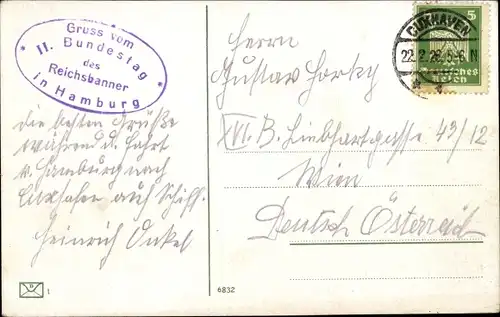 Gruss vom
II. Bundestag
des
Reichsbanner
in Hamburg
die besten Grüße
während d. Fahrt
v. Hamburg nach
Cuxhafen auf Schiff.
Heinrich Onkel
Herrn
Gustav Horky
XVI. B. Liebhartgasse 43/12
Wien
Deutsch Österreich
5
Deutsches
Reich
CUXHAVEN
22.2.26.
N
1
6832